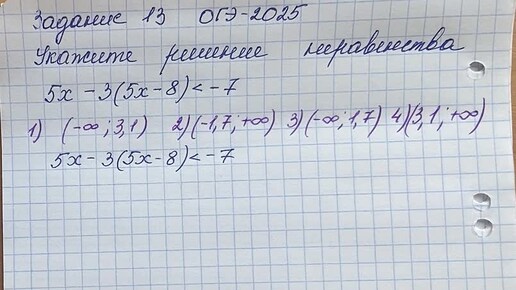 Задание 13 ОГЭ-2025
Укажите решение неравенства
5x - 3(5x - 8) < -7
1) (-∞; 3,1) 2) (-1,7; +∞) 3) (-∞; 1,7) 4) (3,1; +∞)
5x - 3(5x - 8) < -7